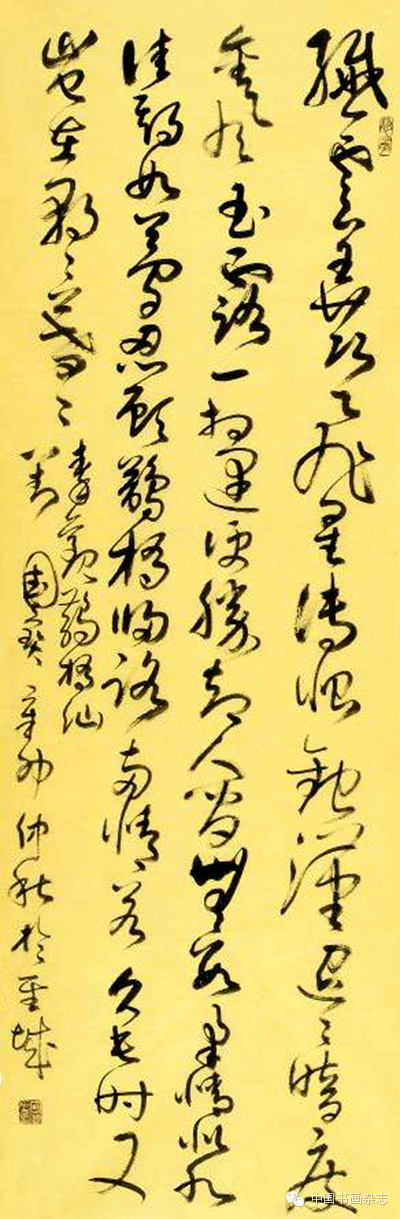 纖雲弄巧飛星傳恨銀漢迢〻暗度
金風玉露一相逢便勝却人間無數柔情似水
佳期如夢忍顧鵲橋歸路兩情若久長时又
豈在朝〻暮〻
秦觀鵲橋仙
辛卯仲秋於聖城
中国书画杂志